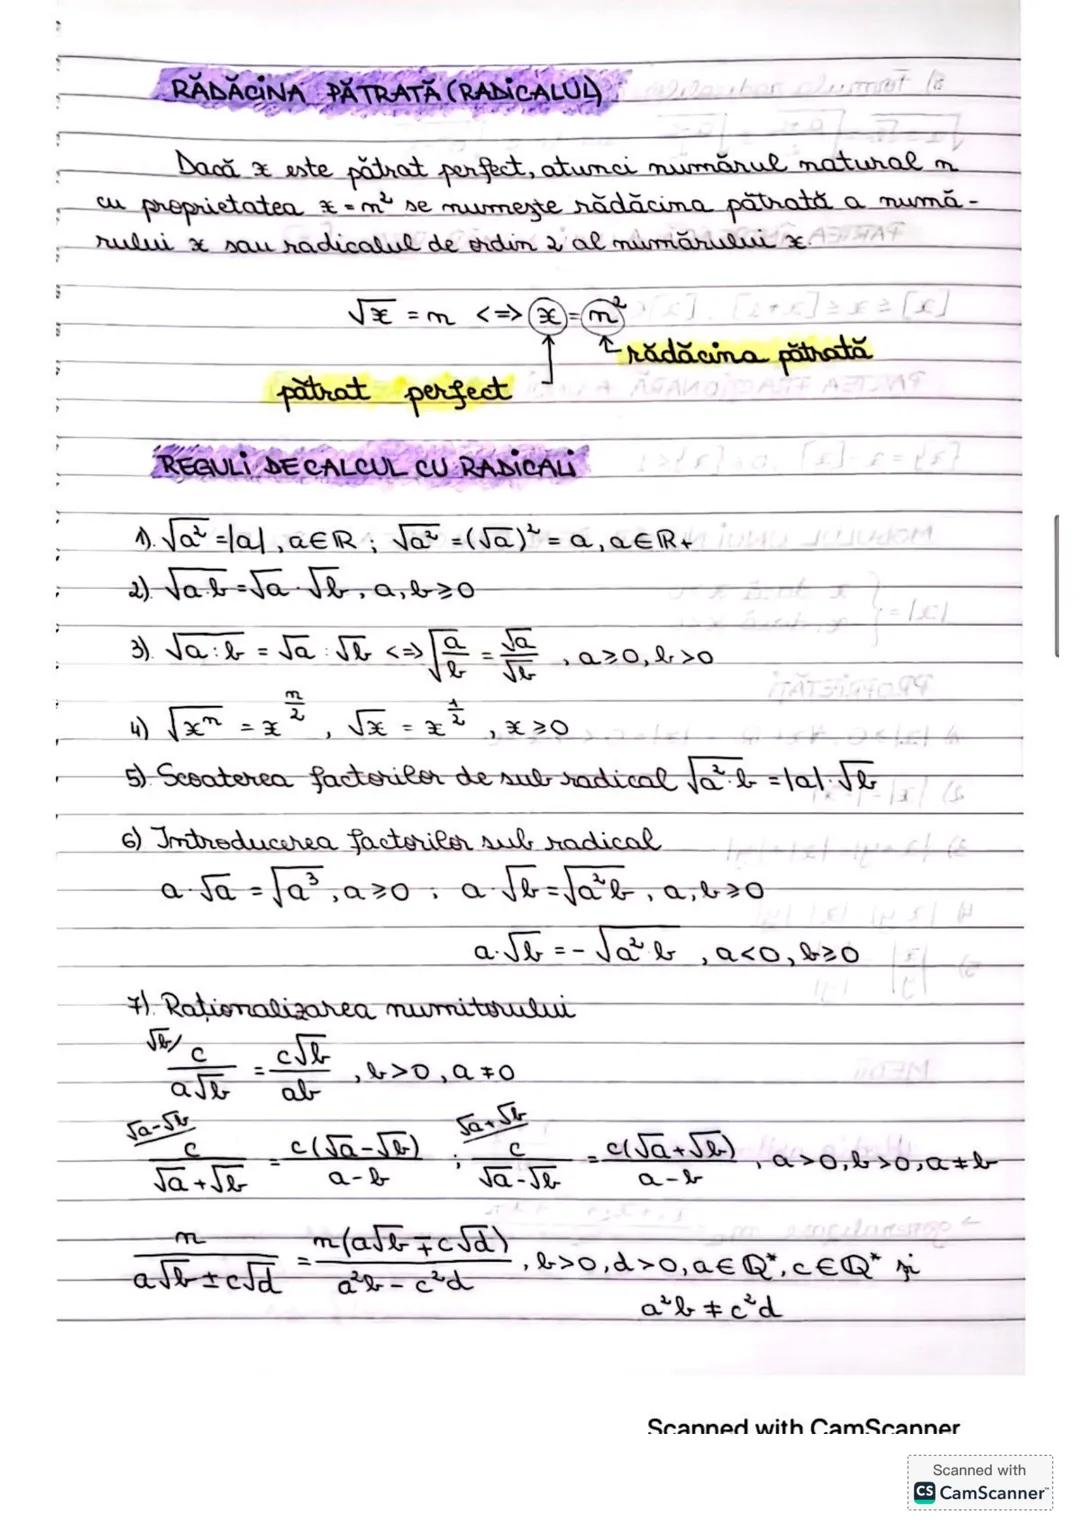 RĂDĂCINA PĂTRATĂ (RADICALUL)
Dacă x este pătrat perfect, atunci numărul natural n
cu proprietatea x = n² se numește rădăcina pătrată a numă-
rului x sau radicalul de ordin 2 al numărului x.
√x = n <=> x = n²
rădăcina pătrată
pătrat perfect
REGULI DE CALCUL CU RADICALI
1). √a² = |a|, a∈ℝ ; √a² = (√a)² = a, a∈ℝ+
2). √a·b = √a · √b, a,b≥0
3). √a:b = √a : √b <=> √(a/b) = √a/√b , a≥0, b>0
4) √xⁿ = x^(n/2) , √x = x^(1/2) , x≥0
5). Scoaterea factorilor de sub radical √a²·b = |a|·√b
6) Introducerea factorilor sub radical
a·√a = √a³, a≥0 ; a·√b = √a²b, a,b≥0
a·√b = -√a²·b , a<0, b≥0
7). Raționalizarea numitorului
√b/ c/(a√b) = c√b/(ab) , b>0, a≠0
√a-√b/ c/(√a+√b) = c(√a-√b)/(a-b) ; √a+√b/ c/(√a-√b) = c(√a+√b)/(a-b) , a>0, b>0, a≠b
n/(a√b±c√d) = n(a√b∓c√d)/(a²b-c²d) , b>0, d>0, a∈ℚ*, c∈ℚ* și
a²b ≠ c²d
Scanned with CamScanner
Scanned with
CS CamScanner